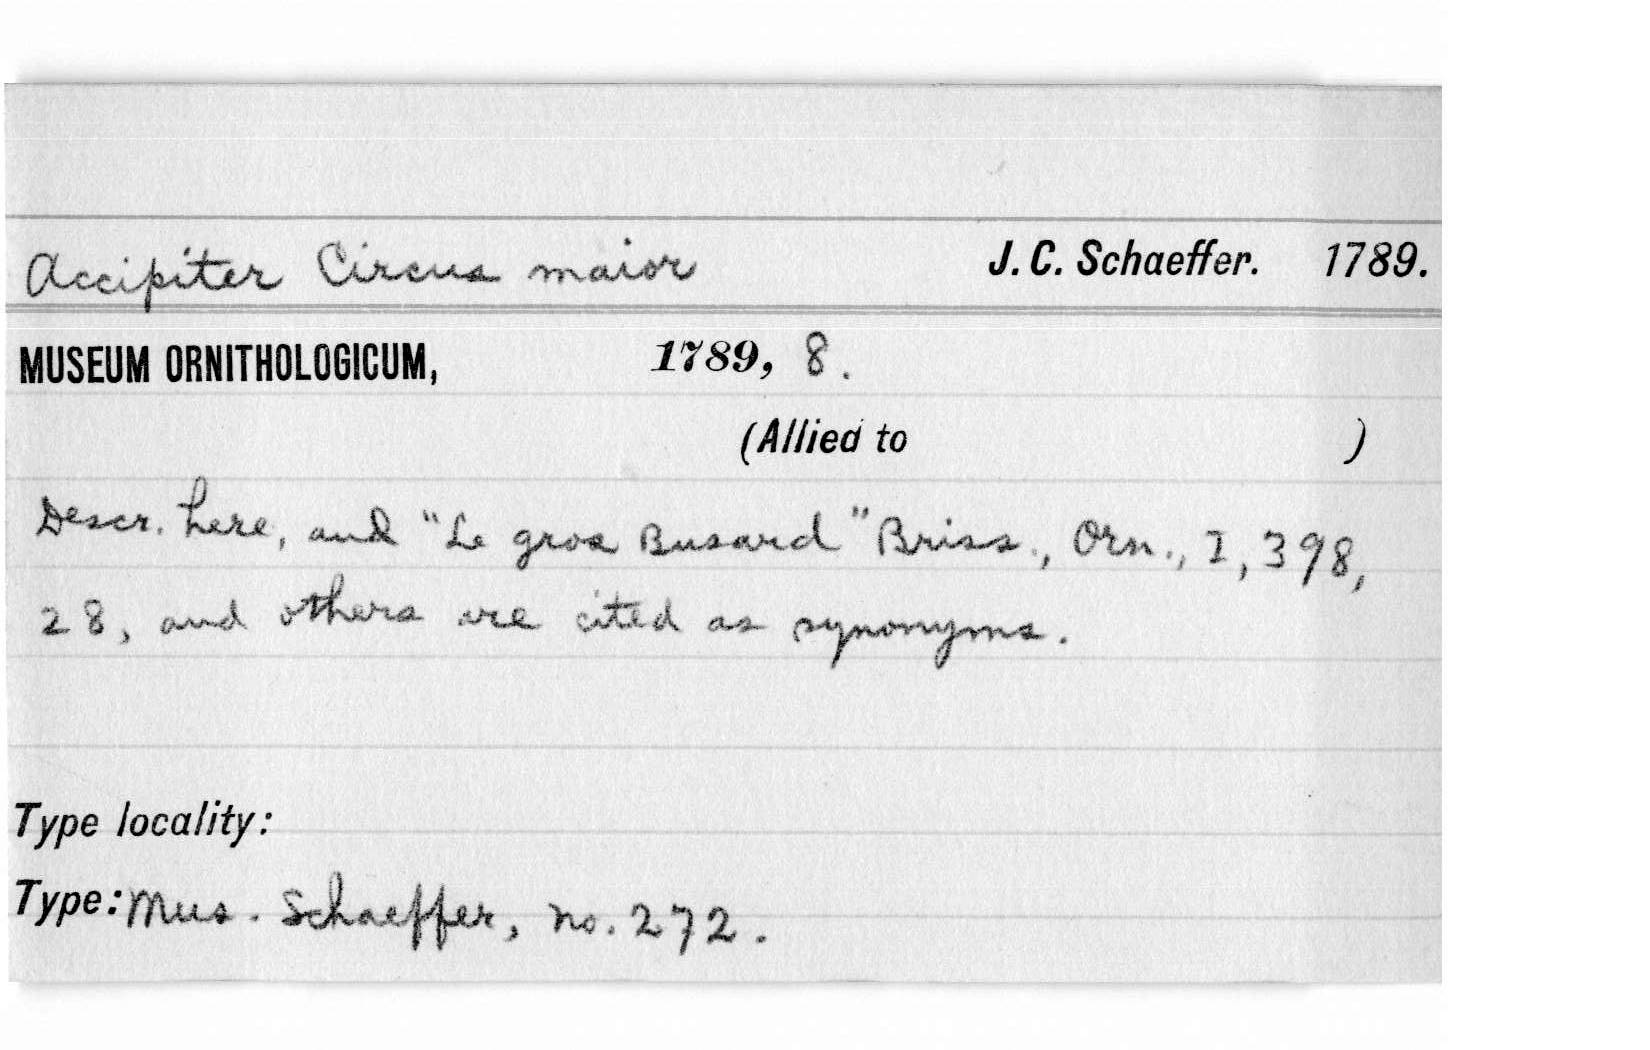 Accipiter Circus maior J. C. Schaeffer. 1789.
MUSEUM ORNITHOLOGICUM, 1789, 8.
(Allied to )
Descr. here, and "Le gros Busard" Briss., Orn., I, 398,
28, and others are cited as synonyms.
Type locality:
Type: Mus. Schaeffer, no. 272.